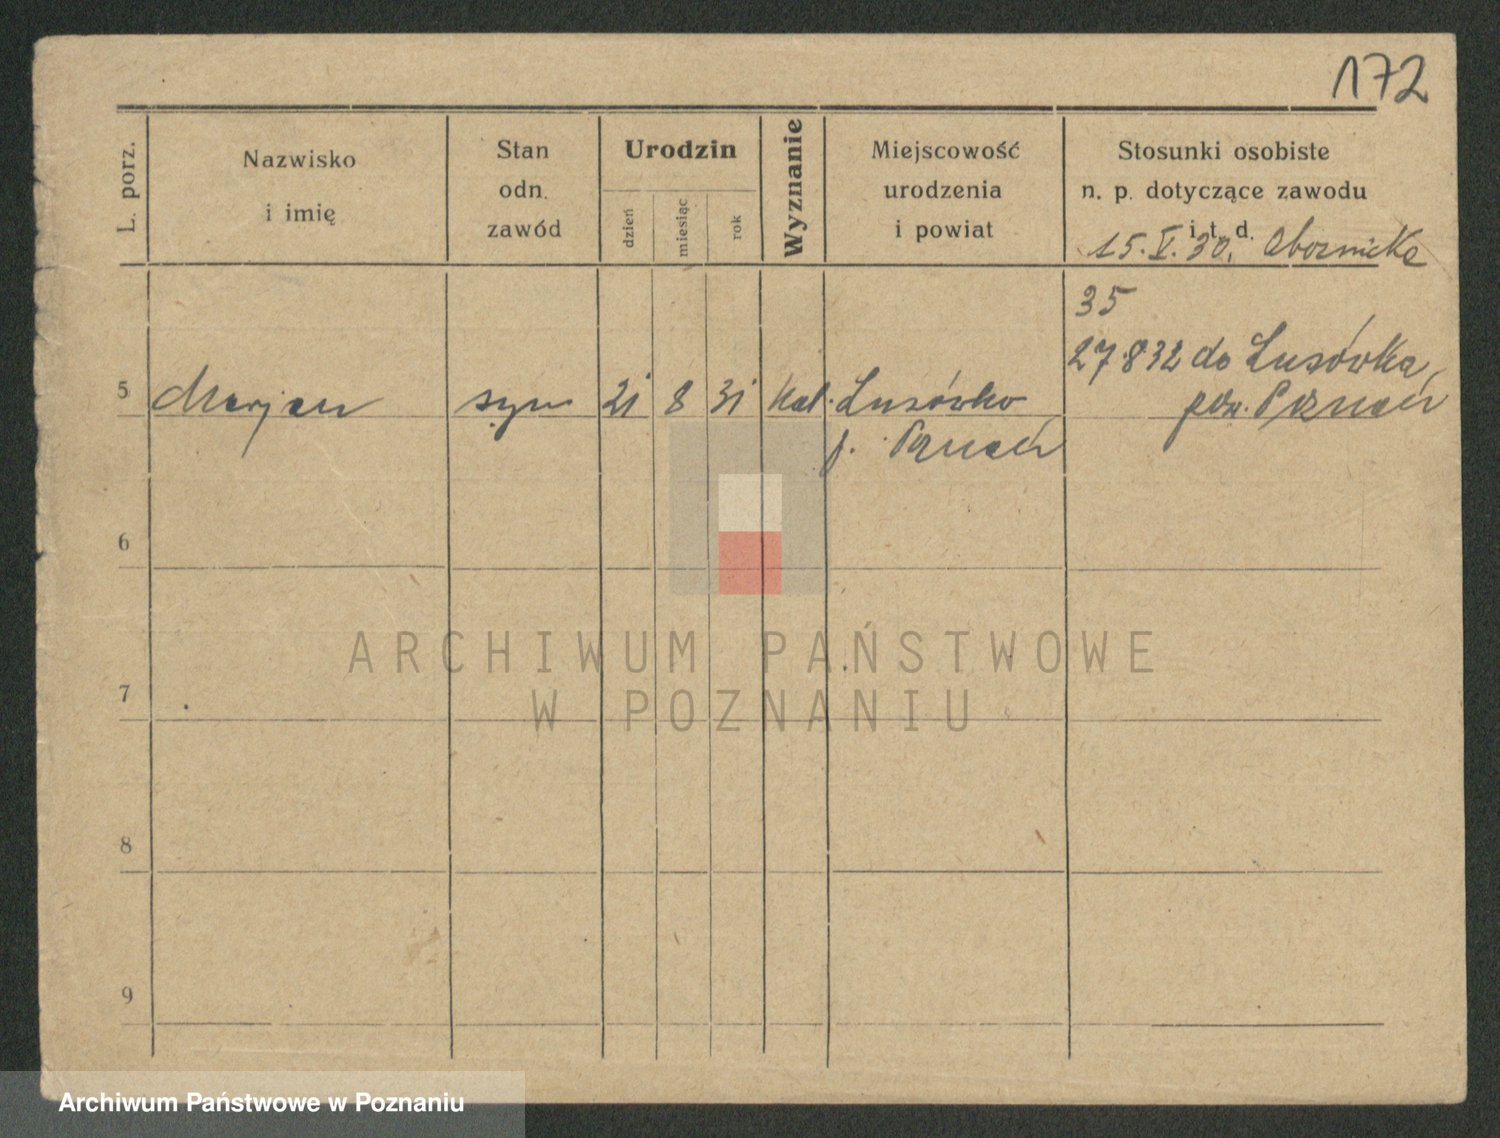 172
L. porz.
Nazwisko
i imię
Stan
odn.
zawód
Urodzin
dzień
miesiąc
rok
Wyznanie
Miejscowość
urodzenia
i powiat
Stosunki osobiste
n. p. dotyczące zawodu
i t. d.
15. V. 30. Obornicka
35
27.8 32 do Lusówka
pow. Poznań
5 Marjan syn 21 8 31 kat. Lusówko
p. Poznań
6
7
8
9
ARCHIWUM PAŃSTWOWE
W POZNANIU
Archiwum Państwowe w Poznaniu